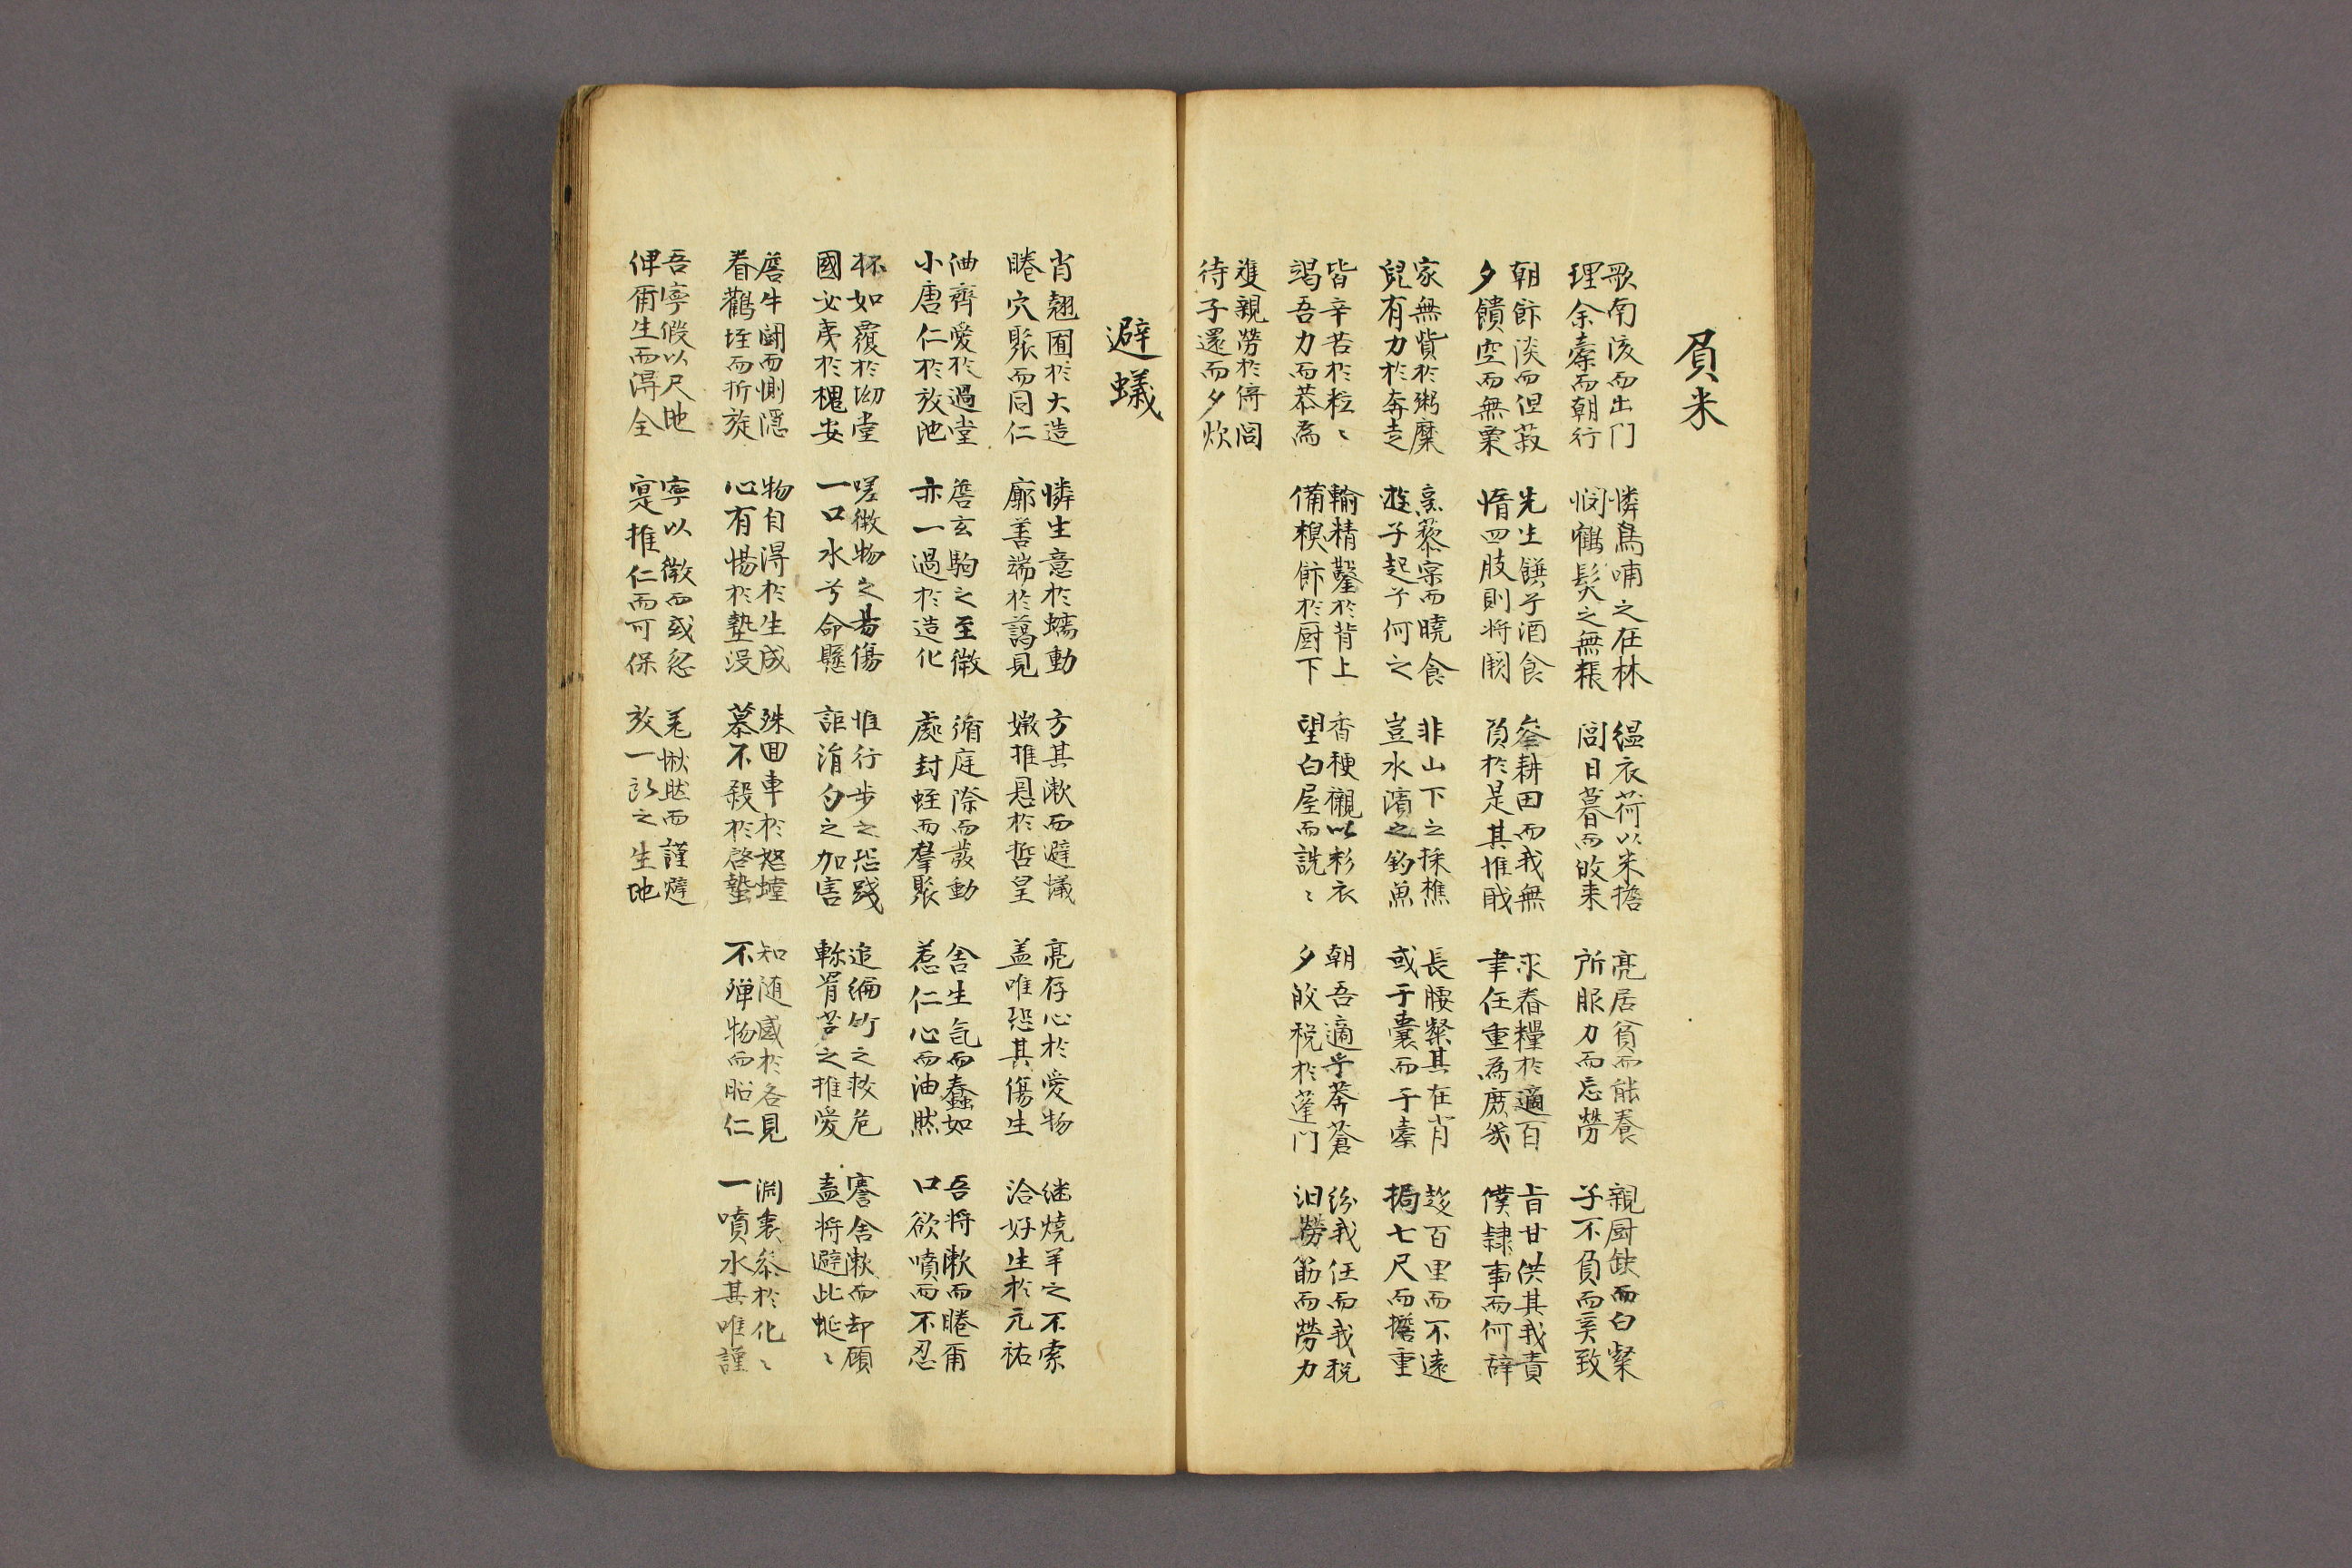 負米
歌南陔而出门
理余橐而朝行
憐烏哺之在林
悶鶴髮之無粻
縕衣荷以米擔
閭日暮而皈来
亮居貧而能養
所服力而忘勞
親厨缺而白粲
子不負而奚致
朝飰淡而但菽
夕饋空而無粟
先生饌兮酒食
惰四肢則将
參耕田而我無
負於是其惟
求舂糧於適百
聿任重為庶幾
旨甘供其我責
僕隷事而何辞
家無貲於粥糜
兒有力於奔走
烹藜而曉食
遊子起兮何之
非山下之採樵
豈水濱之釣魚
長腰粲其在肖
或于囊而于橐
趍百里而不遠
捐七尺而擔重
皆辛苦於粒〻
竭吾力而恭為
輸精鑿於背上
備糗飰於厨下
香稉襯以衫衣
望白屋而詵〻
朝吾適乎莽蒼
夕皈稅於蓬门
纷我任而我稅
汩勞筋而勞力
親勞於倚閭
待子還而夕炊
避蟻
肖翹囿於大造
睠穴聚而同仁
憐生意於蠕動
廓善端於藹見
方其漱而避蟻
媺推恩於哲皇
亮存心於愛物
盖唯恐其傷生
継燒羊之不索
洽好生於元祐
油齊愛於過堂
小唐仁於放池
詹玄駒之至微
亦一過於造化
循庭除而蕺動
處封蛭而羣聚
含生氣而蠢如
惹仁心而油然
吾将漱而睠爾
口欲噴而不忍
杯如覆於坳堂
國必夷於槐安
嗟微物之易傷
一口水兮命懸
惟行步之恐踐
詎涓勺之加害
追編竹之救危
軫胥苦之推愛
謇舍漱而却顧
盍将避此蜒〻
詹牛鬭而惻隱
眷鸛垤而折旋
物自得於生成
心有惕於墊没
殊回車於怒螳
慕不殺於啓蟄
知随感於各見
不殫物而昭仁
渊衷叅於化〻
一噴水其唯謹
吾寧假以尺地
俾爾生而得全
寧以微而或忽
寔推仁而可保
羌愀然而謹避
放一队之生地